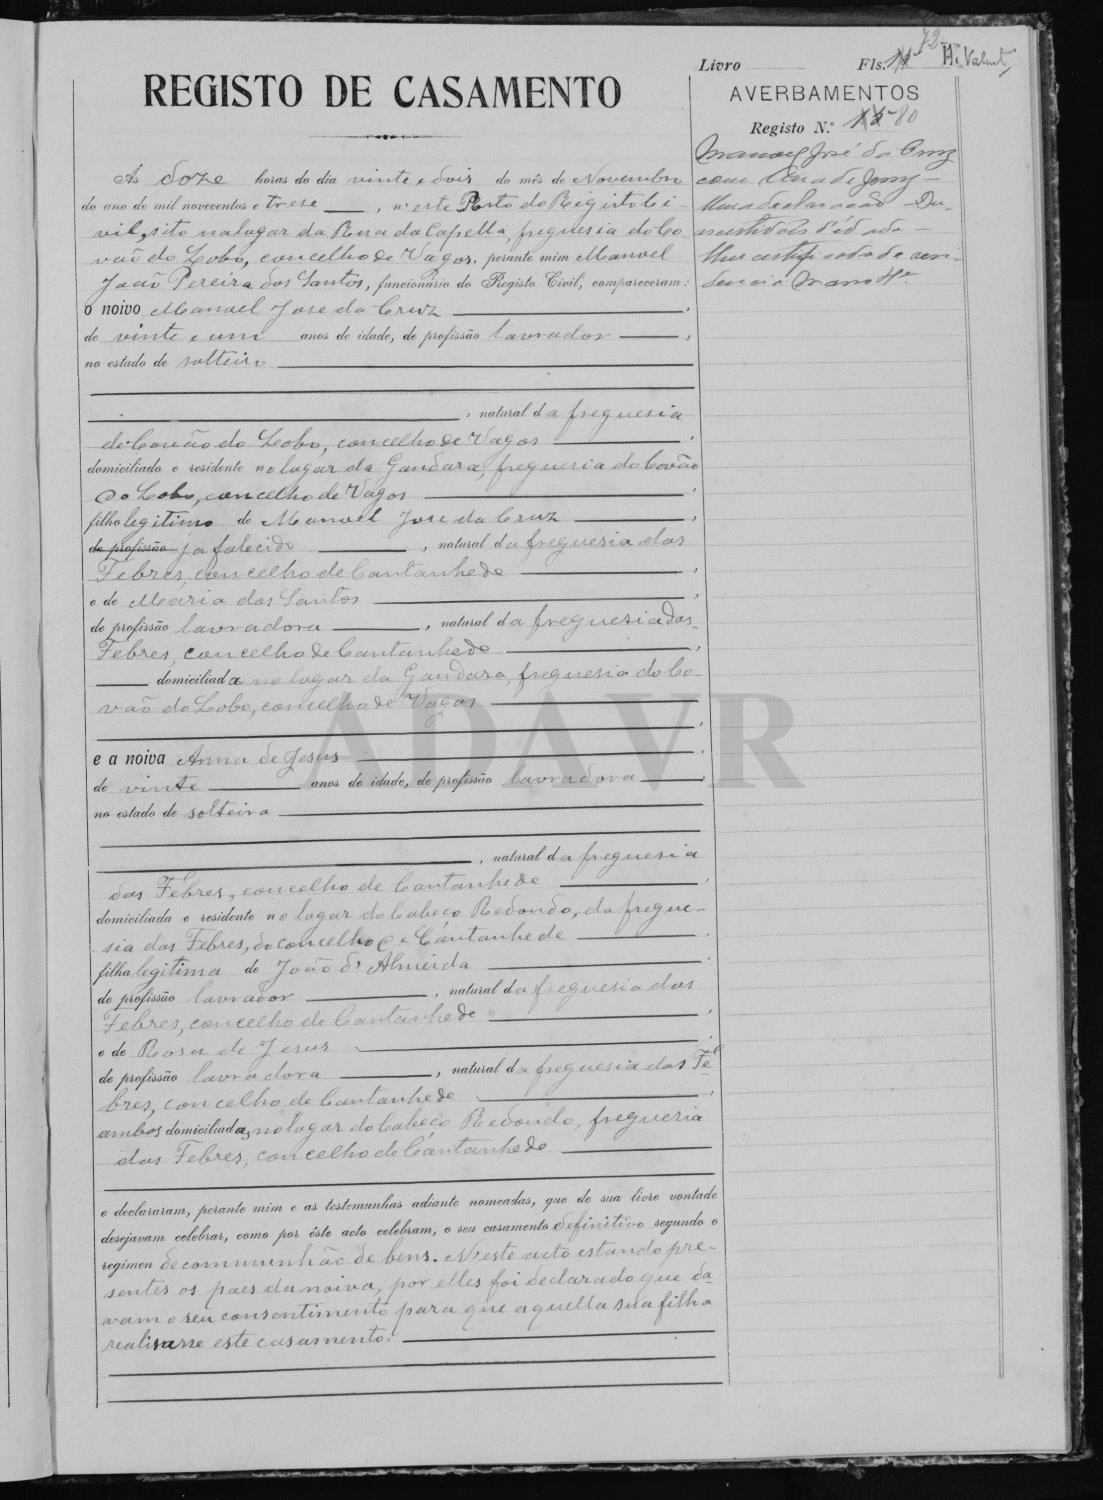 Livro Fls. 72
REGISTO DE CASAMENTO
AVERBAMENTOS
Registo N.º 80
Manoel José da Cruz
com Anna de Jesus
Uma declaração - Du-
as certidões d'edade -
Um certificado de resi-
dencia
Ás doze horas do dia vinte e dois do mês de Novembro
do ano de mil novecentos e trese, n'este Posto do Registo Ci-
vil, sito no lugar da Rua da Capella, freguesia do Co-
vão do Lobo, concelho de Vagos, perante mim Manoel
João Pereira dos Santos, funcionário do Registo Civil, compareceram:
o noivo Manuel Jose da Cruz,
de vinte e um anos de idade, de profissão lavrador,
no estado de solteiro
, natural da freguesia
do Covão do Lobo, concelho de Vagos,
domiciliado e residente no lugar da Gandara, freguesia do Covão
do Lobo, concelho de Vagos,
filho legitimo de Manoel Jose da Cruz,
de profissão ja falecido, natural da freguesia das
Febres, concelho de Cantanhede,
e de Maria dos Santos,
de profissão lavradora, natural da freguesia das
Febres, concelho de Cantanhede,
domiciliada no lugar da Gandara, freguesia do Co-
vão do Lobo, concelho de Vagos
,
e a noiva Anna de Jesus,
de vinte anos de idade, de profissão lavradora,
no estado de solteira
, natural da freguesia
das Febres, concelho de Cantanhede,
domiciliada e residente no lugar do Cabeço Redondo, da fregue-
sia das Febres, do concelho de Cantanhede,
filha legitima de João d'Almeida,
de profissão lavrador, natural da freguesia das
Febres, concelho de Cantanhede,
e de Rosa de Jesus,
de profissão lavradora, natural da freguesia das Fe-
bres, concelho de Cantanhede,
ambos domiciliados, no lugar do Cabeço Redondo, freguesia
das Febres, concelho de Cantanhede
e declararam, perante mim e as testemunhas adiante nomeadas, que de sua livre vontade
desejavam celebrar, como por êste acto celebram, o seu casamento definitivo segundo o
regimen de communhão de bens. N'este acto estando pre-
sentes os paes da noiva, por elles foi declarado que da-
vam o seu consentimento para que aquella sua filha
realisasse este casamento.
ADAVR